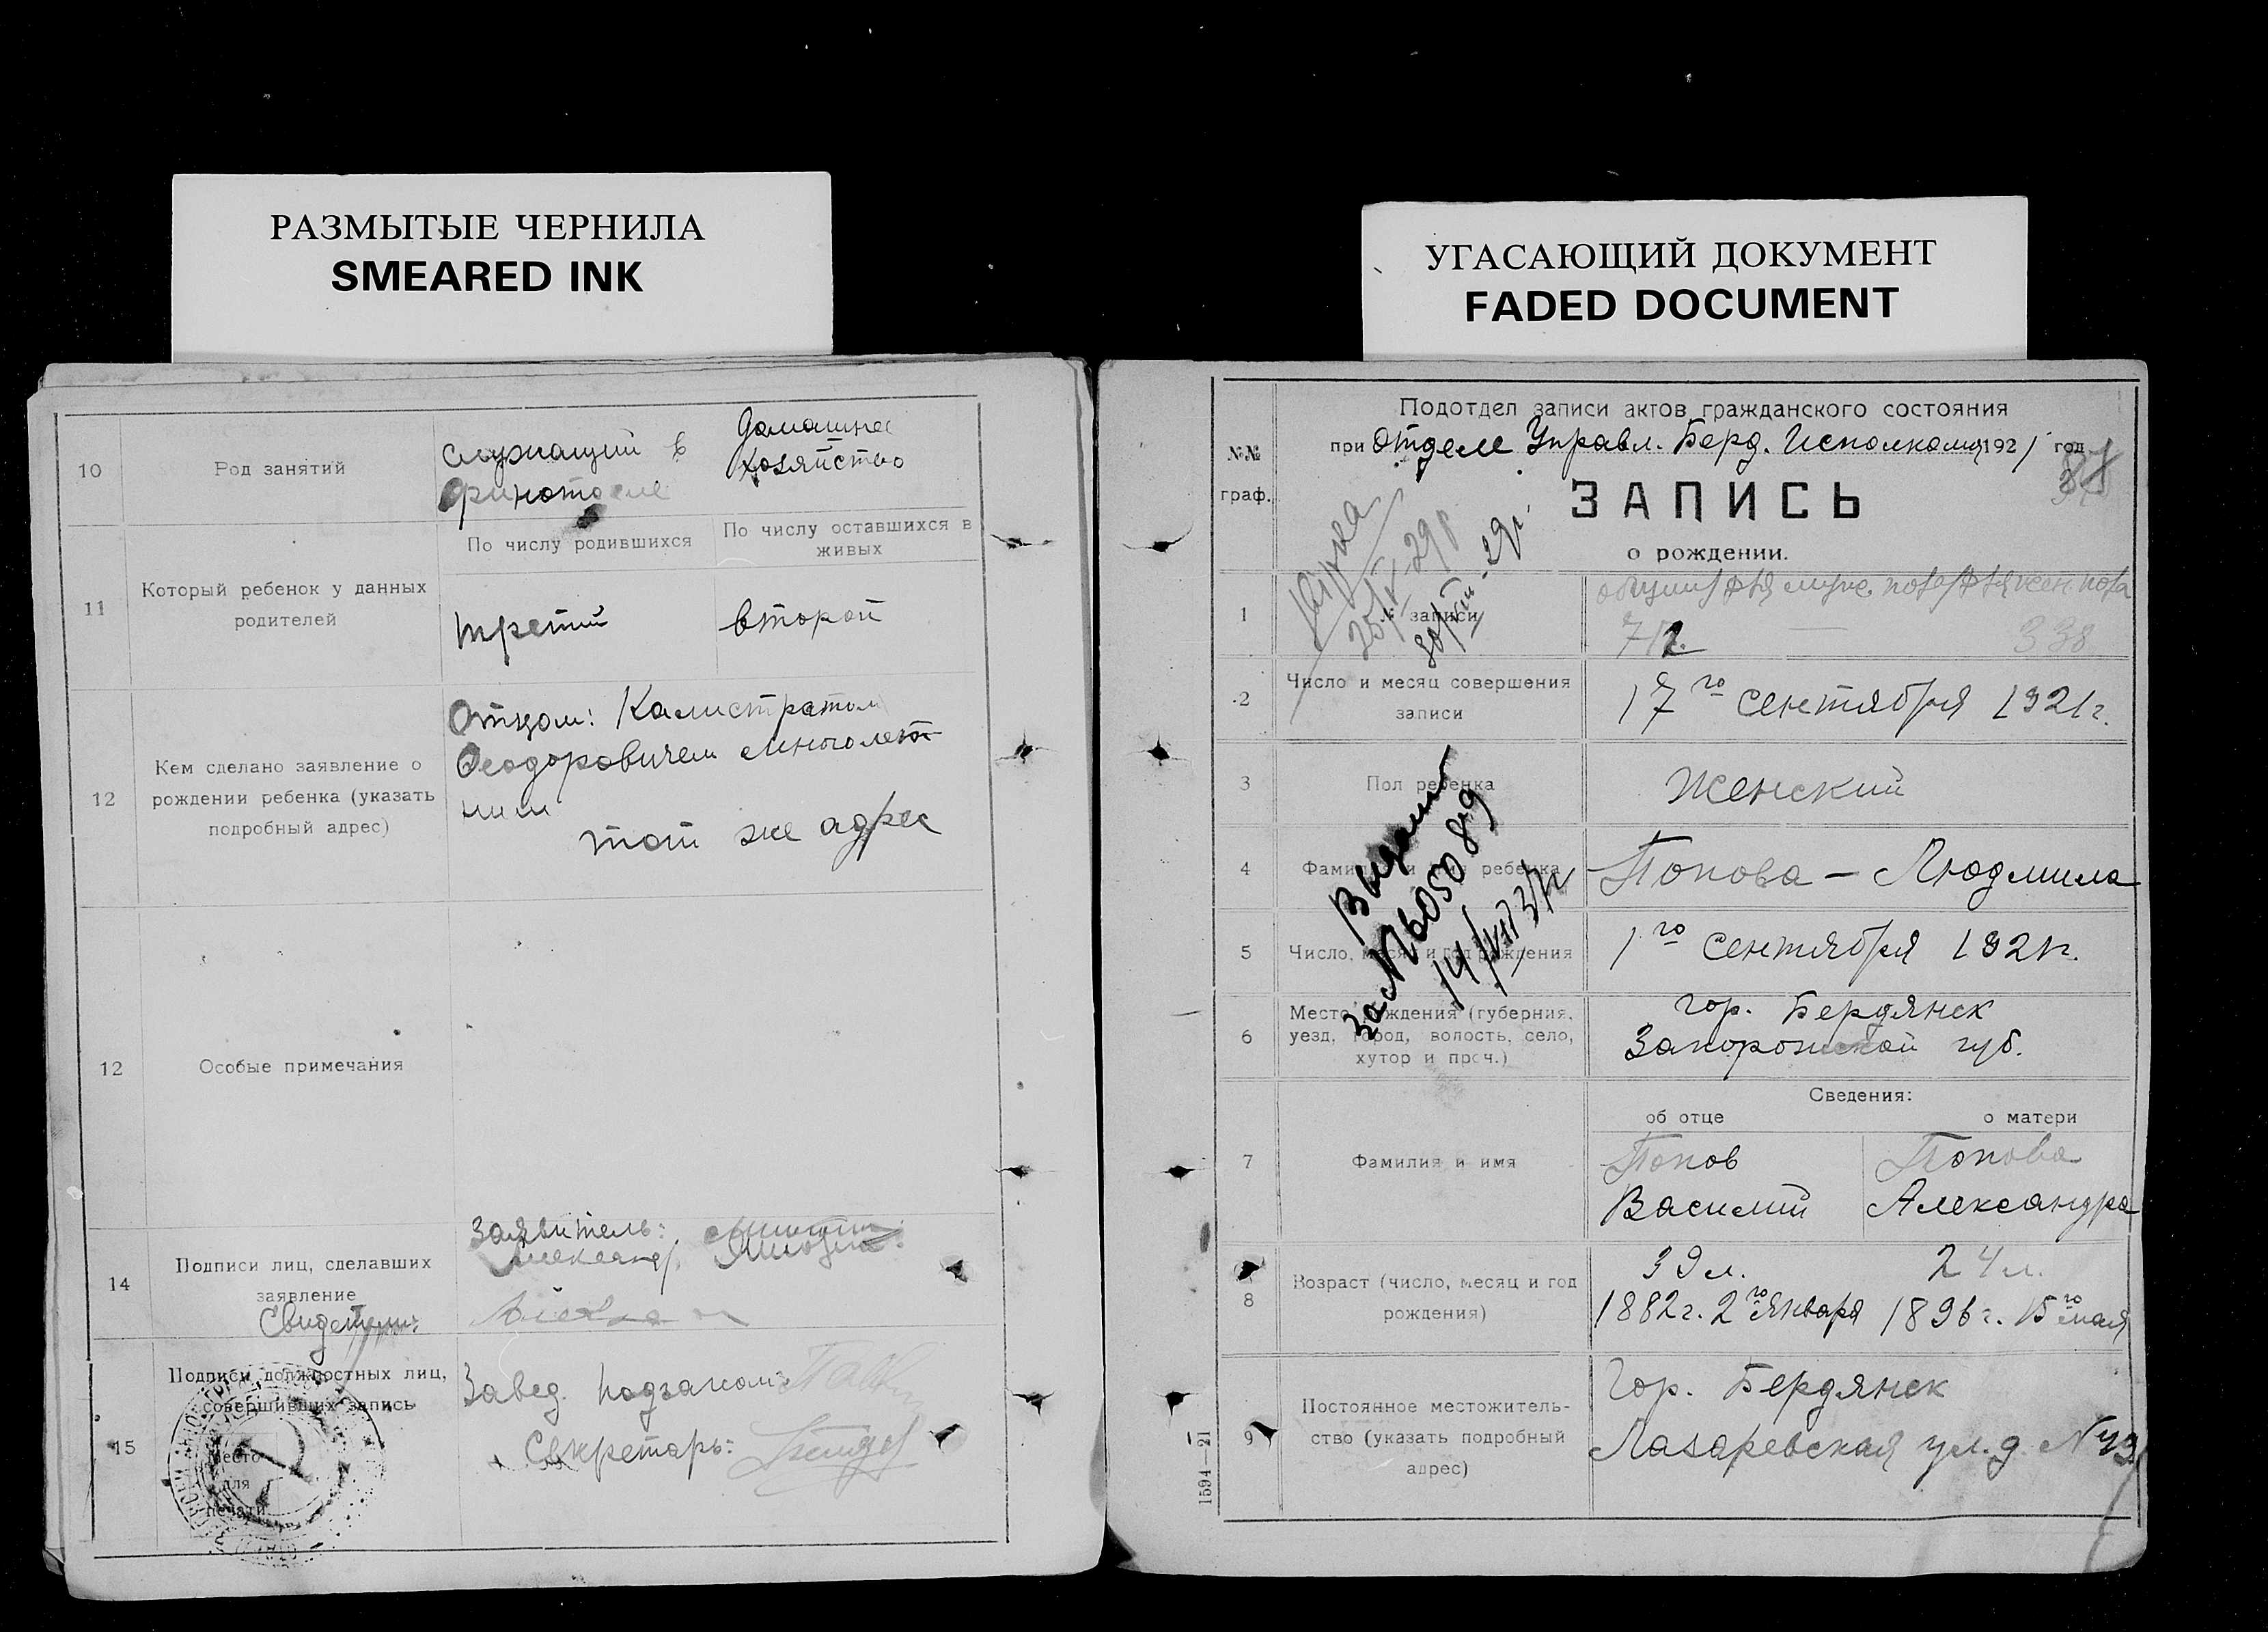 РАЗМЫТЫЕ ЧЕРНИЛА
SMEARED INK
10
Род занятий
служащий в
Домашнее
хозяйство
11
Который ребенок у данных
родителей
По числу родившихся
По числу оставшихся в
живых
третий
второй
12
Кем сделано заявление о
рождении ребенка (указать
подробный адрес)
Отцом: Калистратом
Феодоровичем Многолет
ним
тот же адрес
12
Особые примечания
14
Подписи лиц, сделавших
заявление
Свидетели:
Заявитель:
15
Подписи должностных лиц,
совершивших запись
Место
для
печати
Завед. подзагсом:
Секретарь:
УГАСАЮЩИЙ ДОКУМЕНТ
FADED DOCUMENT
№№
граф.
Подотдел записи актов гражданского состояния
при Отделе Управл. Берд. Исполкома 1921 год
ЗАПИСЬ
о рождении.
1
№ записи
712
338
2
Число и месяц совершения
записи
17го сентября 1921г.
3
Пол ребенка
Женский
4
Фамилия и имя ребенка
Попова – Людмила
5
Число, месяц и год рождения
1го сентября 1921г.
6
Место рождения (губерния,
уезд, город, волость, село,
хутор и проч.)
гор. Бердянск
Запорожской губ.
Сведения:
об отце
о матери
7
Фамилия и имя
Попов
Василий
Попова
Александра
8
Возраст (число, месяц и год
рождения)
39 л.
1882г. 2го января
24 л.
1896г. 15го мая
9
Постоянное местожитель-
ство (указать подробный
адрес)
Гор. Бердянск
Лазаревская ул. д. N 43
1594—21